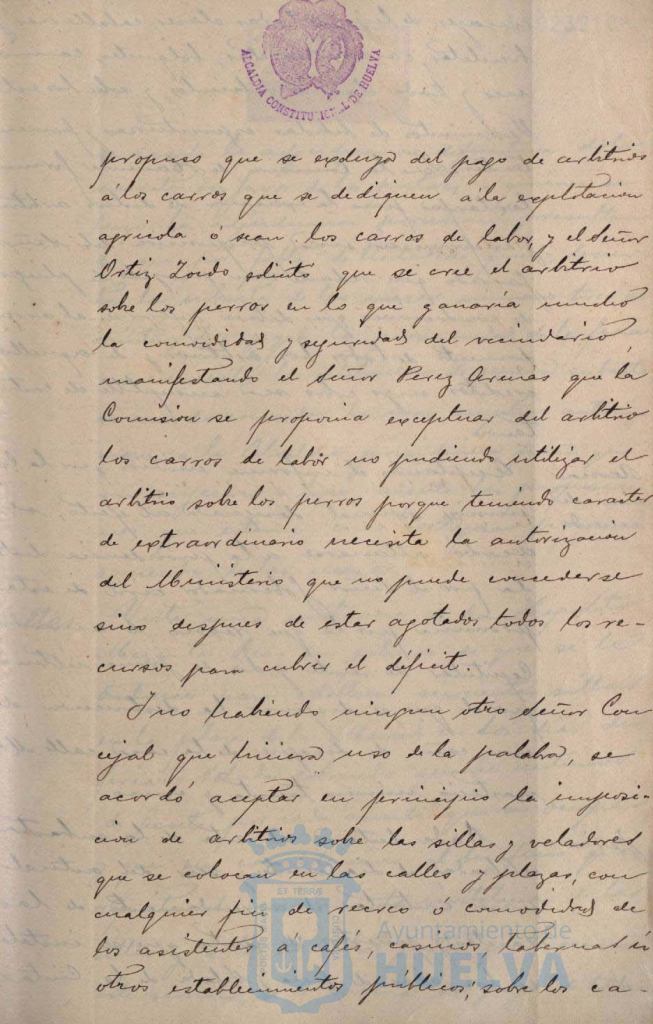 ALCALDIA CONSTITUCIONAL DE HUELVA
propuso que se excluya del pago de arbitrios
á los carros que se dediquen á la explotacion
agricola ó sean los carros de labor, y el Señor
Ortiz Zoido solicitó que se cree el arbitrio
sobre los perros en lo que ganaría mucho
la comodidad y seguridad del vecindario,
manifestando el Señor Perez Arenas que la
Comision se proponia exceptuar del arbitrio
los carros de labor no pudiendo utilizar el
arbitrio sobre los perros porque teniendo caracter
de extraordinario necesita la autorizacion
del Ministerio que no puede concederse
sino despues de estar agotados todos los re-
cursos para cubrir el déficit.
Y no habiendo ningun otro Señor Con
cejal que hiciera uso de la palabra, se
acordó aceptar en principio la imposi-
cion de arbitrios sobre las sillas y veladores
que se colocan en las calles y plazas, con
cualquier fin de recreo ó comodidad de
los asistentes á cafés, casinos, tabernas ú
otros establecimientos públicos; sobre los ca-
Ayuntamiento de
HUELVA